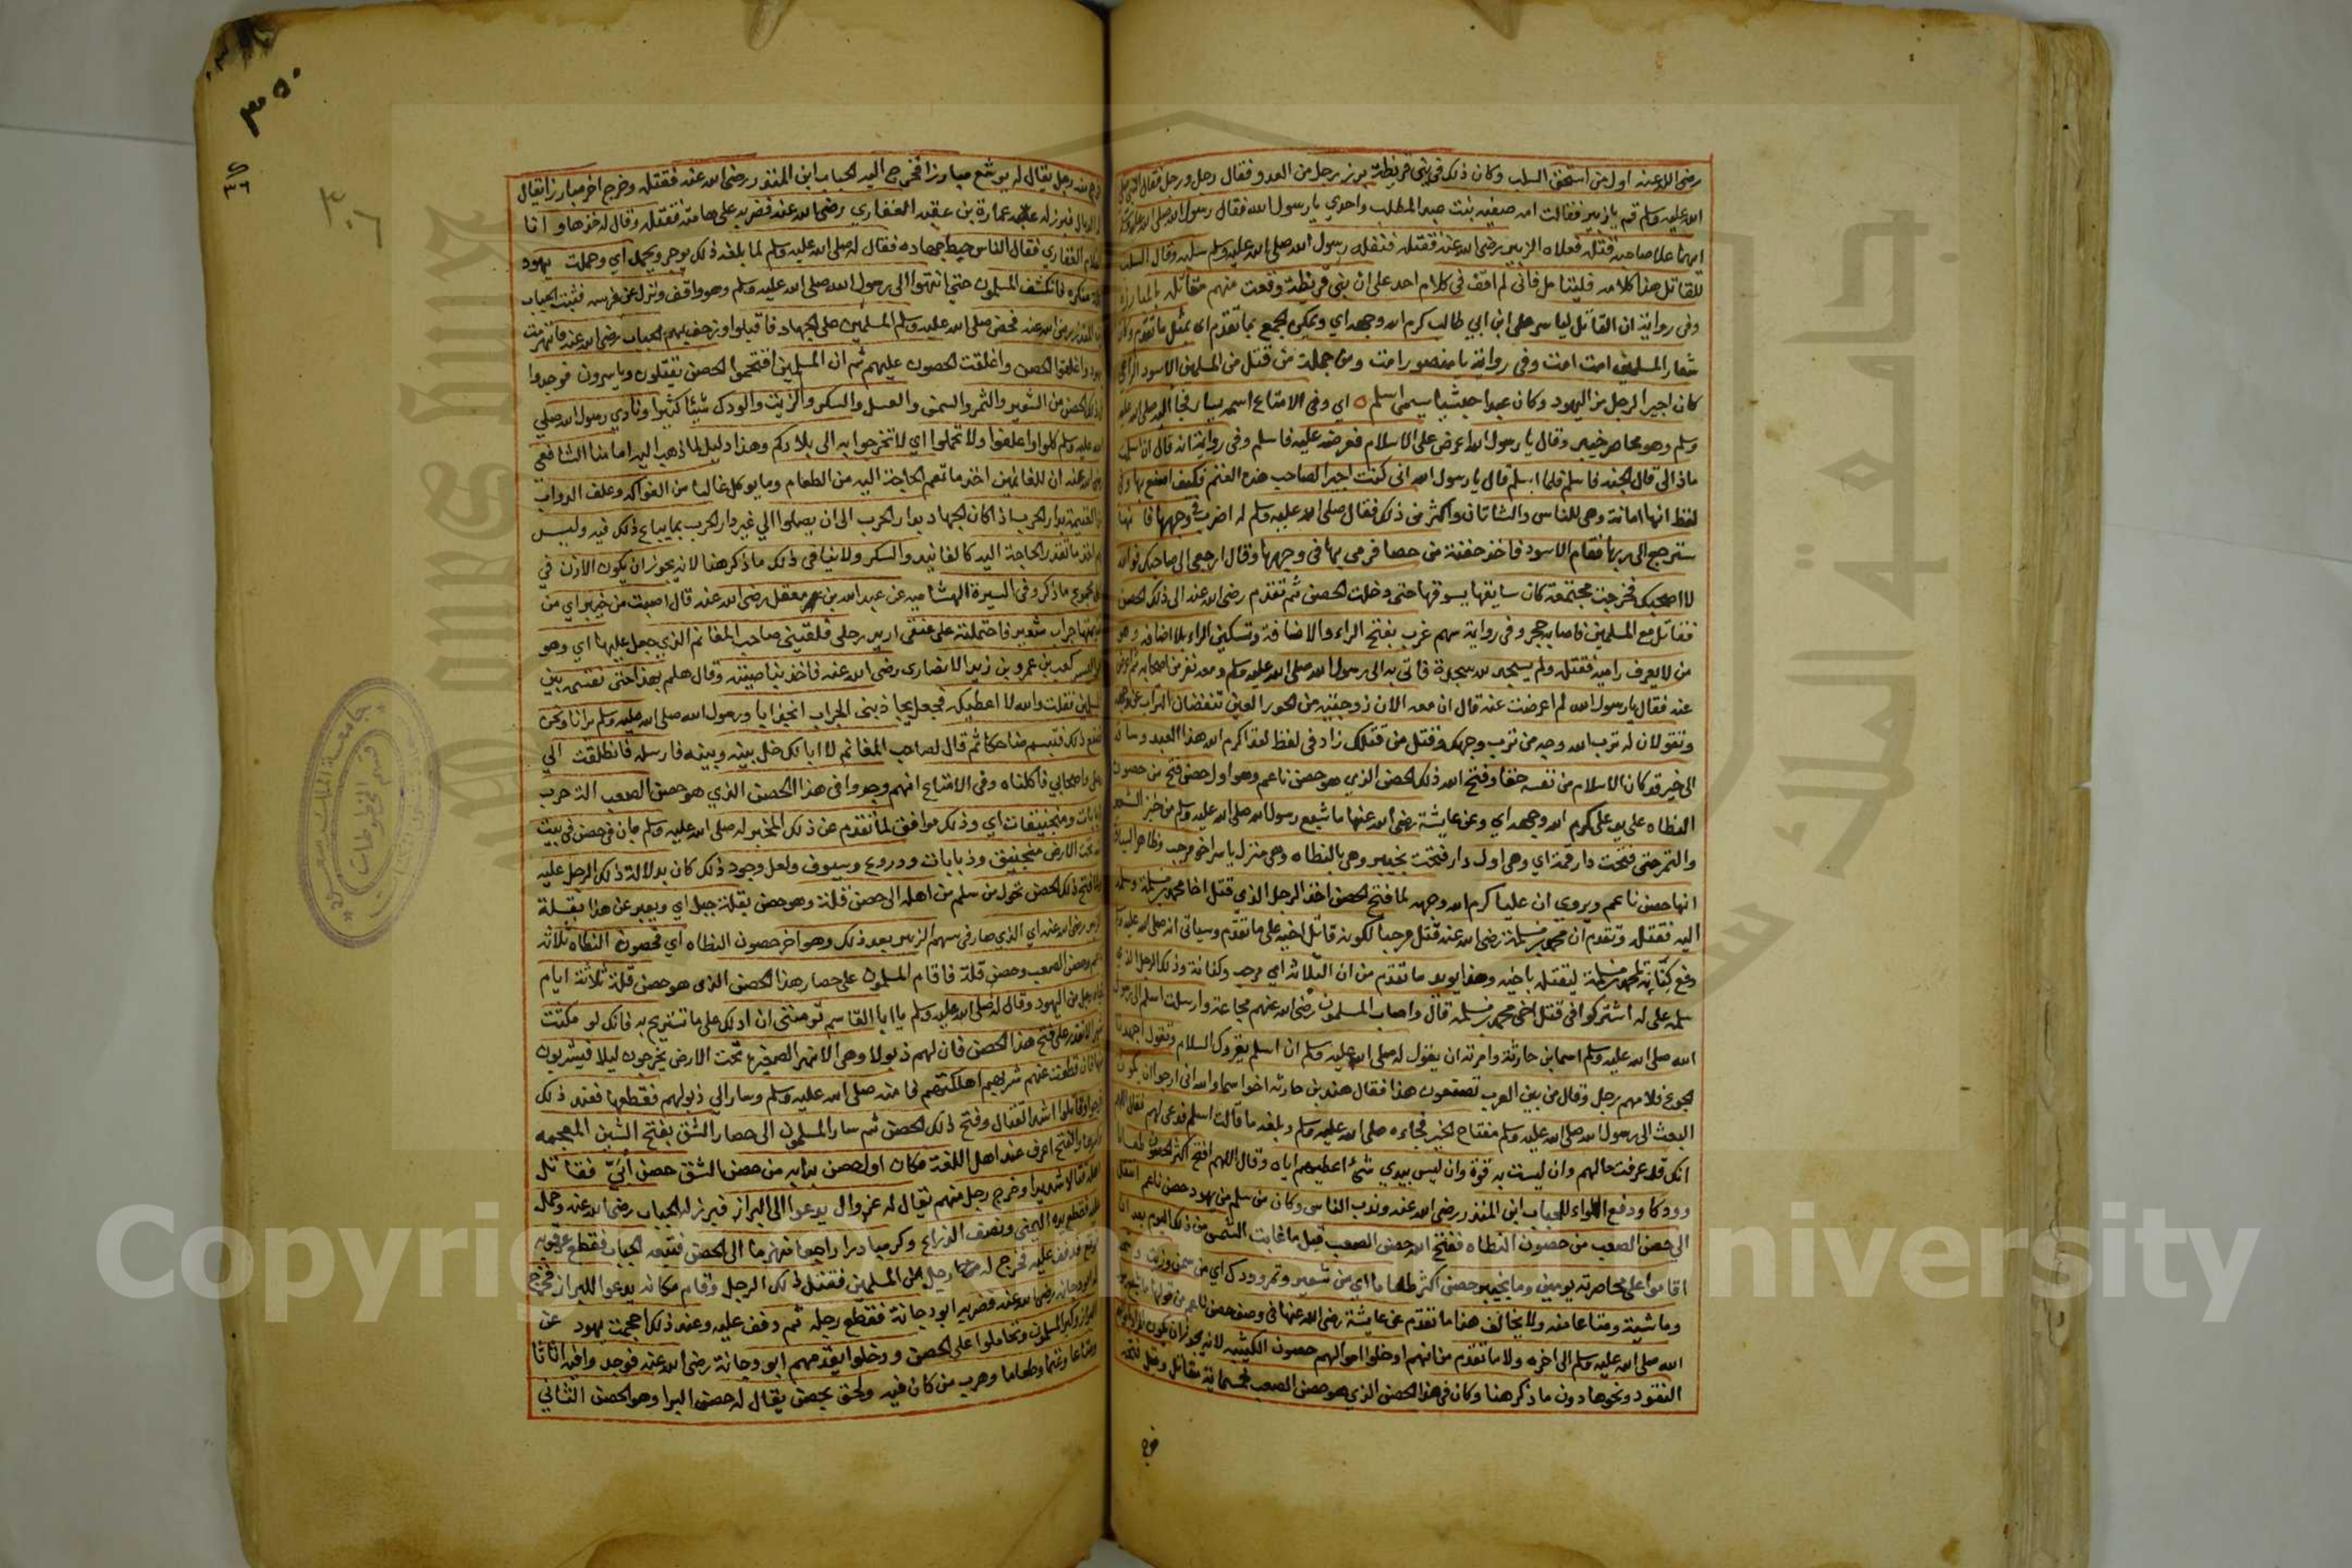 رضى الله عنه اول من استحق السلب وكان ذلك في بنى قريظة برز رجل من العدو فقال رجل ورجل فقال النبى صلى
الله عليه وسلم قم يا زبير فقالت امه صفيه بنت عبد المطلب واحدي يا رسول الله فقال رسول الله صلى الله عليه وسلم
ايهما علا صاحبه قتله فعلاه الزبير رضى الله عنه فقتله فنفله رسول الله صلى الله عليه وسلم سلبه وقال السلب
للقاتل هذا كلامه فليتامل فانى لم اقف في كلام احد على ان بنى قريظة وقعت منهم مقاتله بالمبارزة
وفى رواية ان القاتل لياسر على ابن ابي طالب كرم الله وجهه اي ويمكن الجمع بما تقدم اى بمثل ما تقدم وكان
شعار المسلمين امت امت وفى رواية يا منصور امت ومن جملة من قتل من المسلمين الاسود الراعى
كان اجيرا لرجل من اليهود وكان عبدا حبشيا يسمى اسلم اي وفى الامتاع اسمه يسار فجا النبى صلى الله عليه
وسلم وهو محاصر خيبر وقال يا رسول الله اعرض على الاسلام فعرضه عليه فاسلم وفى رواية انه قال ان اسلمت
ماذا لى قال الجنه فاسلم فلما اسلم قال يا رسول الله انى كنت اجيرا لصاحب هذه الغنم فكيف اصنع بها وفى
لفظ انها امانة وهى للناس والشاتان واكثر من ذلك فقال صلى الله عليه وسلم له اضرب في وجهها فانها
سترجع الى ربها فقام الاسود فاخذ حفنة من حصا فرمى بها في وجهها وقال ارجعى الى صاحبك فوالله
لا اصحبك فخرجت مجتمعة كان سايقها يسوقها حتى دخلت الحصن ثم تقدم رضى الله عنه الى ذلك الحصن
فقاتل مع المسلمين فاصابه حجر وفى رواية سهم غرب بفتح الراء والاضافة وتسكين الراء بلا اضافه وهو
من لا يعرف راميه فقتله ولم يسجد لله سجدة فاتى به الى رسول الله صلى الله عليه وسلم ومعه نفر من اصحابه ثم اعرض
عنه فقال يا رسول الله لم اعرضت عنه قال ان معه الان زوجتيه من الحور العين تنفضان التراب عن وجهه
وتقولان له ترب الله وجه من ترب وجهك وقتل من قتلك زاد فى لفظ لقد اكرم الله هذا العبد وساقه
الى خير قد كان الاسلام من نفسه حقا وفتح الله ذلك الحصن الذي هو حصن ناعم وهو اول حصن فتح من حصون
النطاه على يد على كرم الله وجهه اي وعن عايشة رضى الله عنها ما شبع رسول الله صلى الله عليه وسلم من خبز الشعير
والتمر حتى فتحت دار قمة اي وهى اول دار فتحت بخيبر وهى بالنطاه وهى منزل ياسر اخو مرحب وظاهر السياق
انها حصن ناعم ويروي ان عليا كرم الله وجهه لما فتح الحصن اخذ الرجل الذي قتل اخا محمد بن مسلمة وسلمه
اليه فقتله وتقدم ان محمد بن مسلمة رضى الله عنه قتل مرحبا لكونه قاتل اخيه على ما تقدم وسياتى انه صلى الله عليه وسلم
دفع كنانة لمحمد بن مسلمة ليقتله باخيه وهذا يويد ما تقدم من ان الثلاثه اي مرحب وكنانة وذلك الرجل الذى
سلمه على له اشتركوا فى قتل اخى محمد بن مسلمه قال واصاب المسلمون رضى الله عنهم مجاعة وارسلت اسلم الى رسول
الله صلى الله عليه وسلم اسما بن حارثة وامرته ان يقول له صلى الله عليه وسلم ان اسلم يقروك السلام وتقول اجهدنا
الجوع فلامهم رجل وقال من بين العرب تصنعون هذا فقال هند بن حارثه اخو اسما والله انى ارجو ان يكون
البعث الى رسول الله صلى الله عليه وسلم مفتاح الخير فجاءه صلى الله عليه وسلم وبلغه ما قالت اسلم فدعى لهم فقال اللهم
انك قد عرفت حالهم وان ليست به قوة وان ليس بيدي شئ اعطيهم اياه وقال اللهم افتح اكثر الحصون طعاما
وودكا ودفع اللواء للحباب ابن المنذر رضى الله عنه وندب الناس وكان من سلم من يهود حصن ناعم انتقل
الى حصن الصعب من حصون النطاه ففتح الله حصن الصعب قبل ما غابت الشمس من ذلك اليوم بعد ان
اقاموا على محاصرته يومين وما بخيبر حصن اكثر طعاما اي من شعير وتمر وودك اي من سمن وزيت وشحم
وماشية ومتاعا منه ولا يخالف هذا ما تقدم عن عايشة رضى الله عنها فى وصف حصن ناعم من قولها ما شبع رسول
الله صلى الله عليه وسلم الى اخره ولا ما تقدم من انهم ادخلوا اموالهم حصون الكتيبه لانه يجوز ان يكون المراد باموالهم
النقود ونحوها دون ما ذكر هنا وكان فى هذا الحصن الذي هو حصن الصعب خمسماية مقاتل وقبل فتحه
خرج
٣٥٠
٣٠٦
خرج منه رجل يقال له يوشع مبارزا فخرج اليه الحباب ابن المنذر رضى الله عنه فقتله وخرج اخر مبارزا يقال
له الديال فبرز له عمارة بن عقبه الغفاري رضى الله عنه فضربه على هامته فقتله وقال له خذها وانا
الغلام الغفاري فقال الناس حبط جهاده فقال له صلى الله عليه وسلم لما بلغه ذلك يوجر ويحمد اي وحملت يهود
حملة منكره فانكشف المسلمون حتى انتهوا الى رسول الله صلى الله عليه وسلم وهو واقف ونزل عن فرسه فثبت الحباب
ابن المنذر رضى الله عنه فحض صلى الله عليه وسلم المسلمين على الجهاد فاقبلوا وزحف بهم الحباب رضى الله عنه فانهزمت
يهود واغلقوا الحصن واغلقت الحصون عليهم ثم ان المسلمين افتحموا الحصن يقتلون وياسرون فوجدوا
فى ذلك الحصن من الشعير والتمر والسمن والعسل والسكر والزيت والودك شيئا كثيرا ونادي رسول الله صلى
الله عليه وسلم كلوا واعلفوا ولا تحملوا اي لا تخرجوا به الى بلادكم وهذا دليل لما ذهب اليه امامنا الشافعى
رضى الله عنه ان للغانمين اخذ ما تعم الحاجة اليه من الطعام وما يوكل غالبا من الفواكه وعلف الدواب
من الغنيمة بدار الحرب اذا كان الجهاد بدار الحرب الى ان يصلوا الى غير دار الحرب مما يباع ذلك فيه وليس
لهم اخذ ما تقدر الحاجة اليه كالفانيد والسكر ولا ينافى ذلك ما ذكر هنا لانه يجوز ان يكون الاذن فى
مجموع ما ذكر وفى السيرة الهشاميه عن عبد الله بن معقل رضى الله عنه قال اصبت من خيبر اي من
غنيمتها جراب شعير فاحتملته على عنقى اريد رحلى فلقينى صاحب المغانم الذي جعل عليها اي وهو
ابو اليسر كعب بن عمرو بن زيد الانصارى رضى الله عنه فاخذ بناصيته وقال هلم بهذا حتى نقسمه بين
المسلمين فقلت والله لا اعطيك فجعل يجاذبنى الجراب فرانا ورسول الله صلى الله عليه وسلم يرانا ونحن
نصنع ذلك فتبسم ضاحكا ثم قال لصاحب المغانم لا ابا لك خل بينه وبينه فارسله فانطلقت الى
رحلى واصحابي فاكلناه وفى الامتاع انهم وجدوا فى هذا الحصن الذي هو حصن الصعب الة حرب
دبابات ومنجنيقات اي وذلك موافق لما تقدم عن ذلك المخبر له صلى الله عليه وسلم بان فى حصن فى بيت
تحت الارض منجنيق ودبابات ودروع وسيوف ولعل وجود ذلك كان بدلالة ذلك الرجل عليه
ولما فتح ذلك الحصن تحول من سلم من اهله الى حصن قلة وهو حصن بقلة جبل اي ويعبر عن هذا بقلة
الزبير رضى الله عنه اي الذي صار فى سهم الزبير بعد ذلك وهو اخر حصون النطاه اي فحصون النطاه ثلاثه
ناعم وحصن الصعب وحصن قلة فاقام المسلمون على حصار هذا الحصن الذى هو حصن قلة ثلاثة ايام
فجاء رجل من اليهود وقال له صلى الله عليه وسلم يا ابا القاسم تومننى ان ادلك على ما تستريح به فانك لو مكثت
شهرا لا تقدر على فتح هذا الحصن فان لهم ذبولا وهى الانهر الصغيرة تحت الارض يخرجون ليلا فيشربون
منها فان قطعت عنهم شربهم اهلكتهم فامنه صلى الله عليه وسلم وسار الى ذبولهم فقطعها فعند ذلك
خرجوا وقاتلوا اشد القتال وفتح ذلك الحصن ثم سار المسلمون الى حصار الشق بفتح الشين المعجمه
وكسرها والفتح اعرف عند اهل اللغة فكان اول حصن بدا به من حصنى الشق حصن أبيّ فقاتل
اهله قتالا شديدا وخرج رجل منهم يقال له عزوال يدعوا الى البراز فبرز له الحباب رضى الله عنه وحمل
عليه فقطع يده اليمنى ونصف الذراع وكر مبادرا راجعا منهزما الى الحصن فتبعه الحباب فقطع عرقوبه
فوقع فذفف عليه فخرج له رجل من المسلمين فقتل ذلك الرجل وقام مكانه يدعوا للبراز فخرج
له ابو دجانه رضى الله عنه فضربه ابو دجانة فقطع رجله ثم دفف عليه وعند ذلك احجمت يهود عن
البراز وكبر المسلمون وتحاملوا على الحصن ودخلوا يقدمهم ابو دجانة رضى الله عنه فوجدوا فيه اثاثا
ومتاعا وغنما وطعاما وهرب من كان فيه ولحق بحصن يقال له حصن البرا وهو الحصن الثانى
جامعة الملك سعود
قسم المخطوطات
Copyright © King Saud University